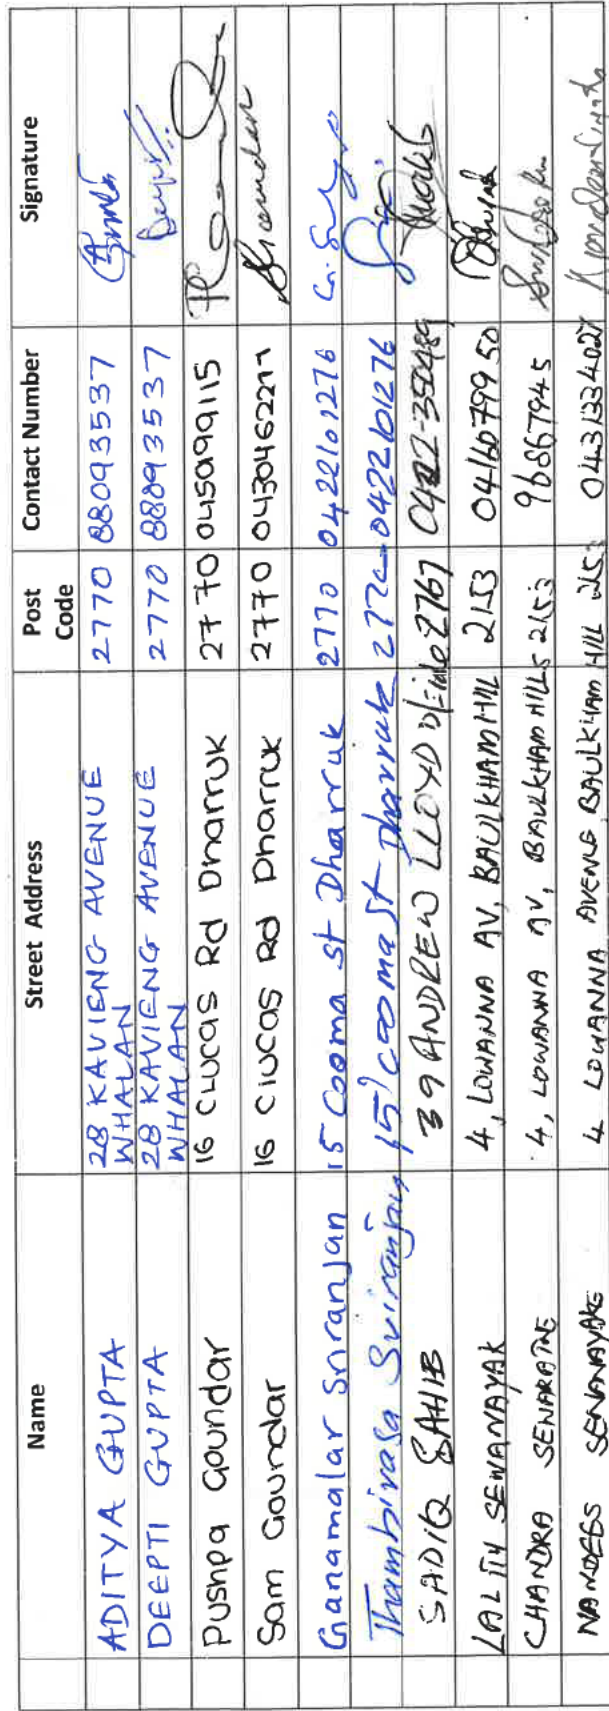 Name Street Address Post Code Contact Number Signature
ADITYA GUPTA 28 KAVIENG AVENUE WHALAN 2770 88093537
DEEPTI GUPTA 28 KAVIENG AVENUE WHALAN 2770 88093537
Pushpa Goundar 16 CLUCAS Rd Dharruk 2770 045099115
Sam Goundar 16 CIUCAS Rd Dharruk 2770 0430462277
Ganamalar Sriranjan 15 Cooma st Dharruk 2770 0422101276
Thambirasa Sriranjan 15 cooma St Dharruk 277 0422101276
SADIQ SAHIB 39 ANDREW LLOYD 2767
LALITH SENANAYAK 4, LOWANNA AV, BAULKHAM HILL 2153 0416079950
CHANDRA SENARATNE 4, LOWANNA AV, BAULKHAM HILLS 2153 96867945
SENANAYAKE 4 LOWANNA AVENUE BAULKHAM HILL 2153 0431334027